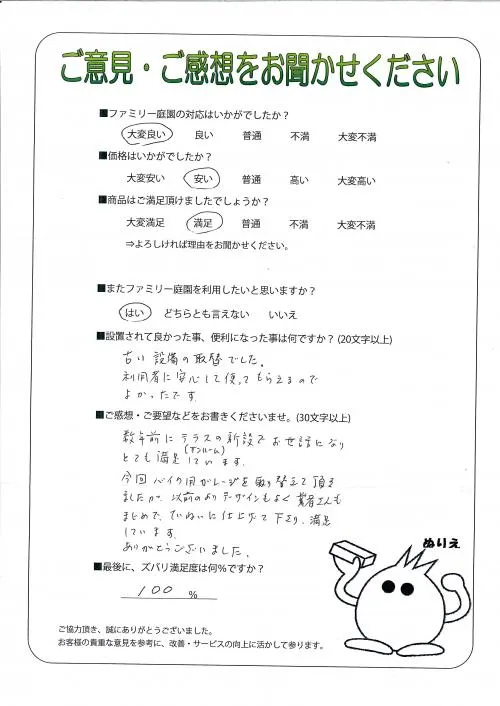 ご意見・ご感想をお聞かせください
■ファミリー庭園の対応はいかがでしたか？
大変良い 良い 普通 不満 大変不満
■価格はいかがでしたか？
大変安い 安い 普通 高い 大変高い
■商品はご満足頂けましたでしょうか？
大変満足 満足 普通 不満 大変不満
⇒よろしければ理由をお聞かせください。
■またファミリー庭園を利用したいと思いますか？
はい どちらとも言えない いいえ
■設置されて良かった事、便利になった事は何ですか？(20文字以上)
古い設備の取替でした。
利用者に安心して使ってもらえるので
よかったです
■ご感想・ご要望などをお書きくださいませ。(30文字以上)
数年前にテラスの新設でお世話になり
(サンルーム)
とても満足しています。
今回バイク用ガレージを取り替えて頂き
ましたが、以前のよりデザインもよく業者さんも
まじめで、ていねいに仕上げて下さり、満足
しています。
ありがとうございました。
ぬりえ
■最後に、ズバリ満足度は何％ですか？
100 %
ご協力頂き、誠にありがとうございました。
お客様の貴重な意見を参考に、改善・サービスの向上に活かして参ります。